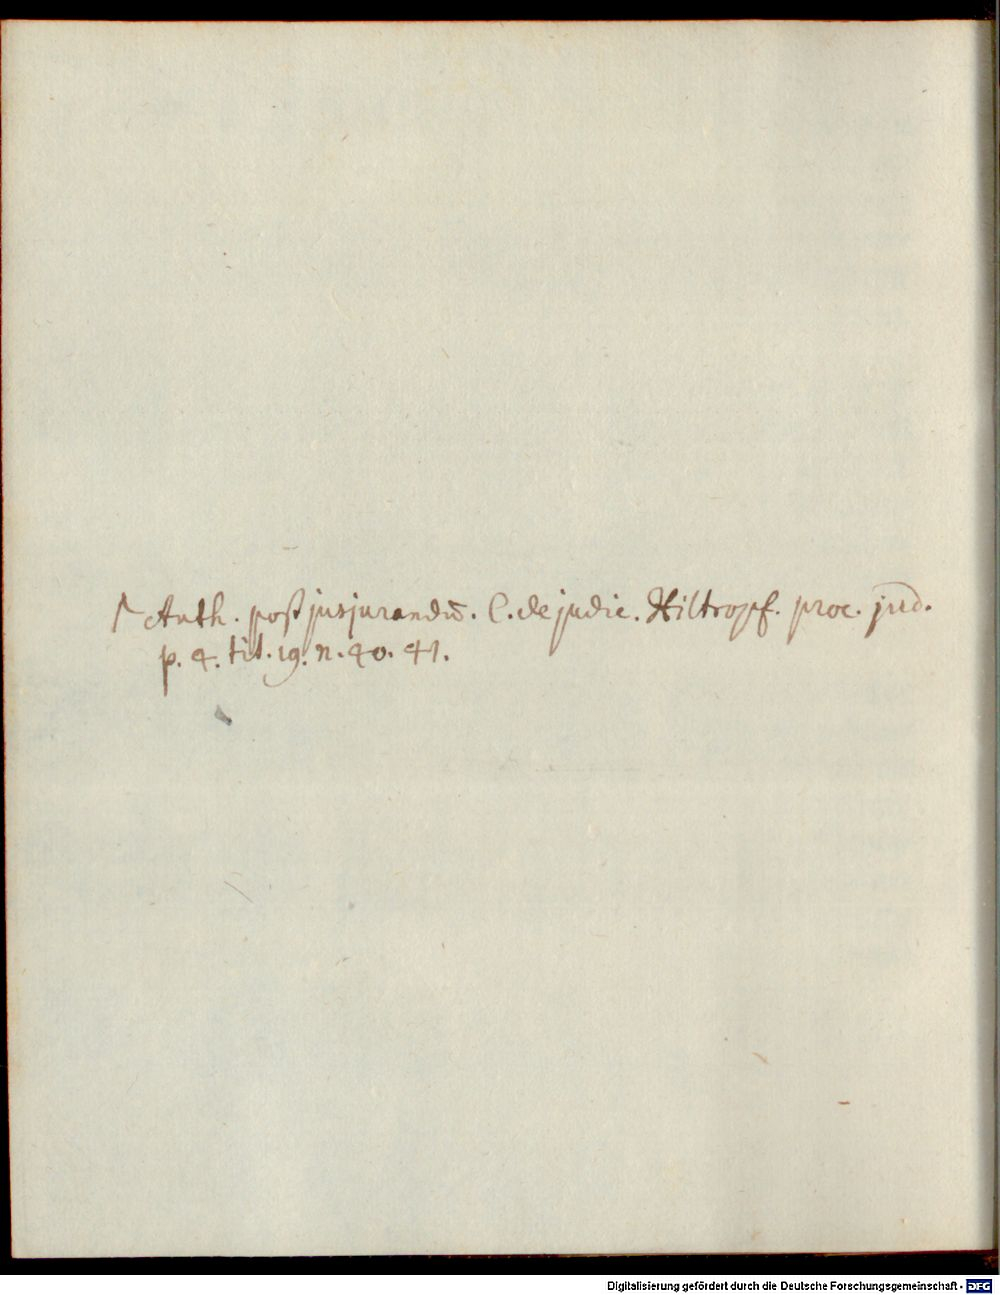 Auth. post jusjurandū. C. de judic. Hiltropf. proc. jud.
p. 4. tit. 19. n. 40. 41.
Digitalisierung gefördert durch die Deutsche Forschungsgemeinschaft - DFG